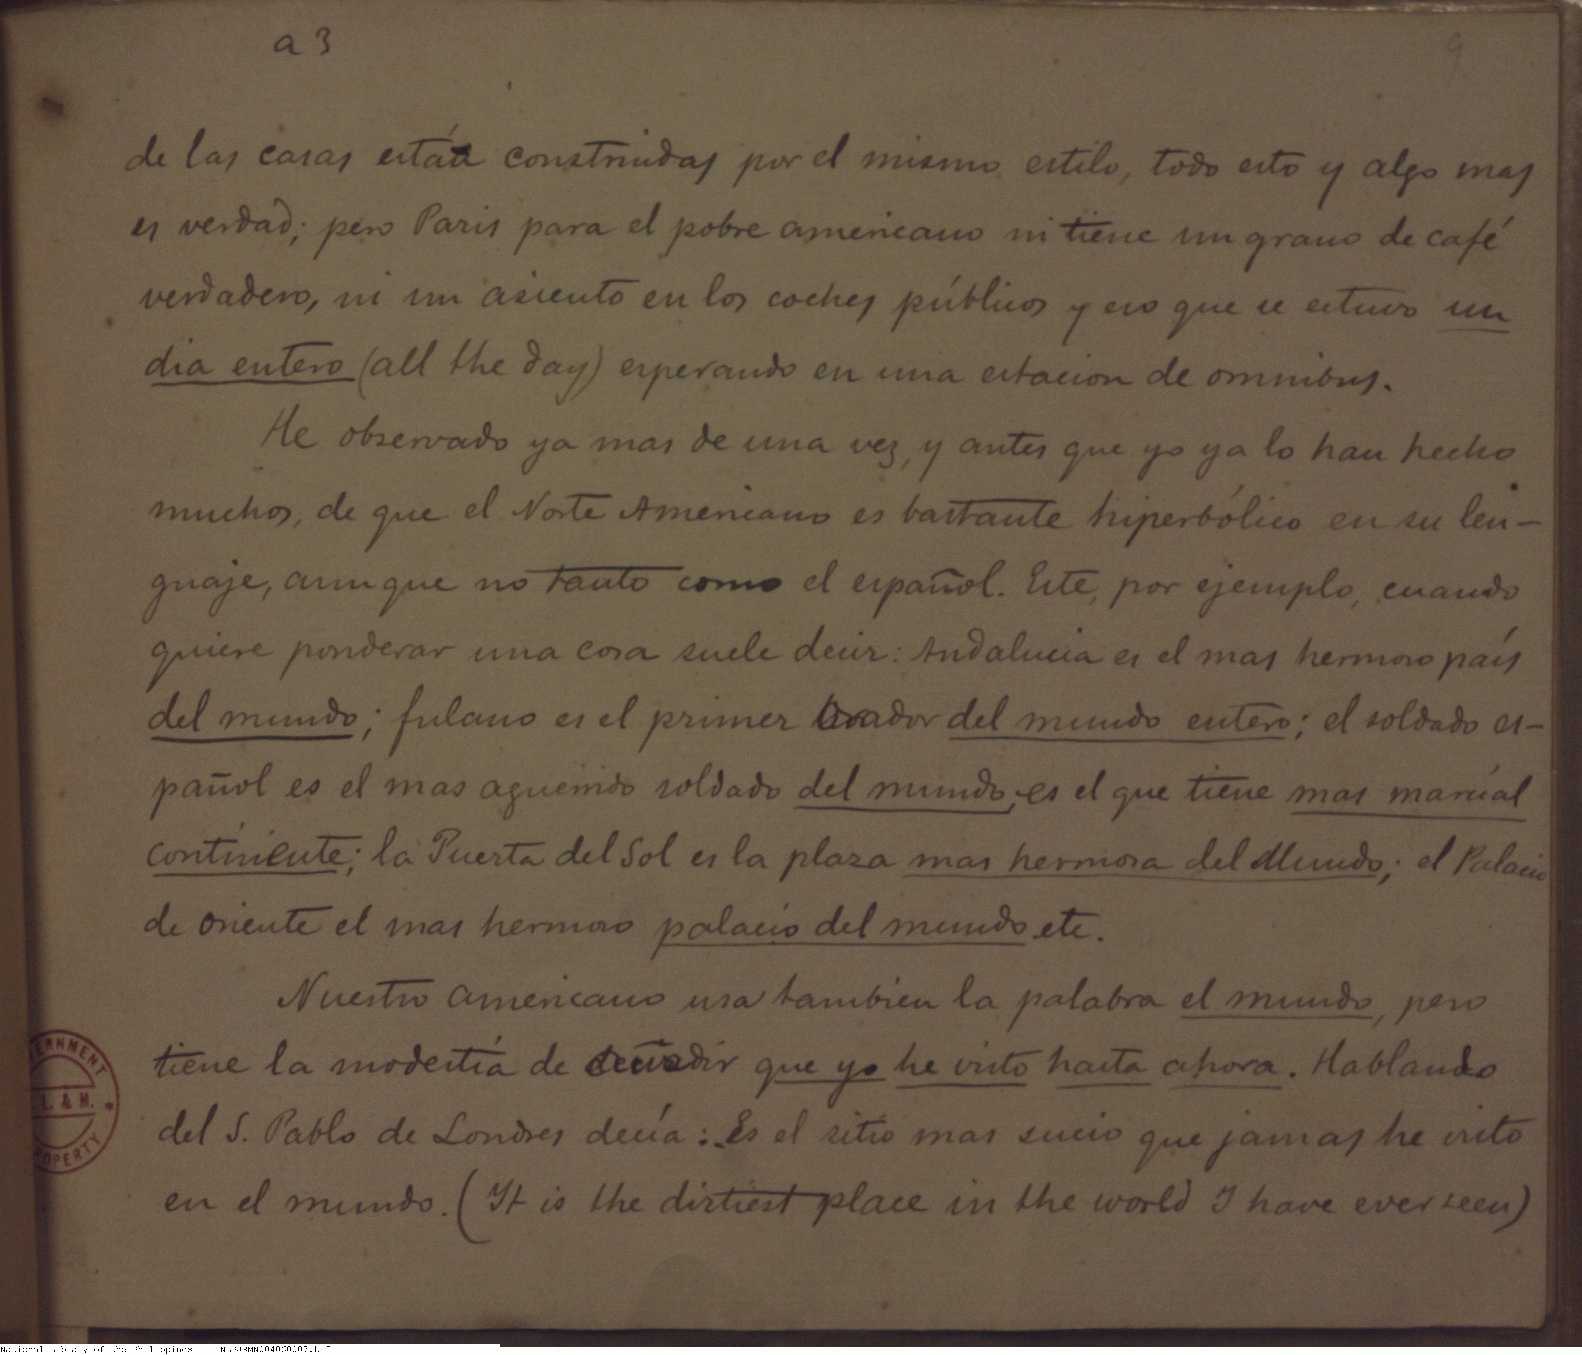 a 3
9
de las casas están construidas por el mismo estilo, todo esto y algo mas
es verdad; pero Paris para el pobre americano ni tiene un grano de café
verdadero, ni un asiento en los coches públicos y eso que se estuvo un
dia entero (all the day) esperando en una estacion de omnibus.
He observado ya mas de una vez, y antes que yo ya lo han hecho
muchos, de que el Norte Americano es bastante hiperbólico en su len-
guaje, aunque no tanto como el español. Este, por ejemplo, cuando
quiere ponderar una cosa suele decir: Andalucia es el mas hermoso país
del mundo; fulano es el primer orador del mundo entero; el soldado es-
pañol es el mas aguerrido soldado del mundo, es el que tiene mas marcial
continente; la Puerta del Sol es la plaza mas hermosa del Mundo; el Palacio
de Oriente el mas hermoso palacio del mundo etc.
Nuestro americano usa tambien la palabra el mundo, pero
tiene la modestia de añadir que yo he visto hasta ahora. Hablando
del S. Pablo de Londres decía: Es el sitio mas sucio que jamas he visto
en el mundo. (It is the dirtiest place in the world I have ever seen)
ERNMENT
L. & M.
ROPERTY
National Library of the Philippines